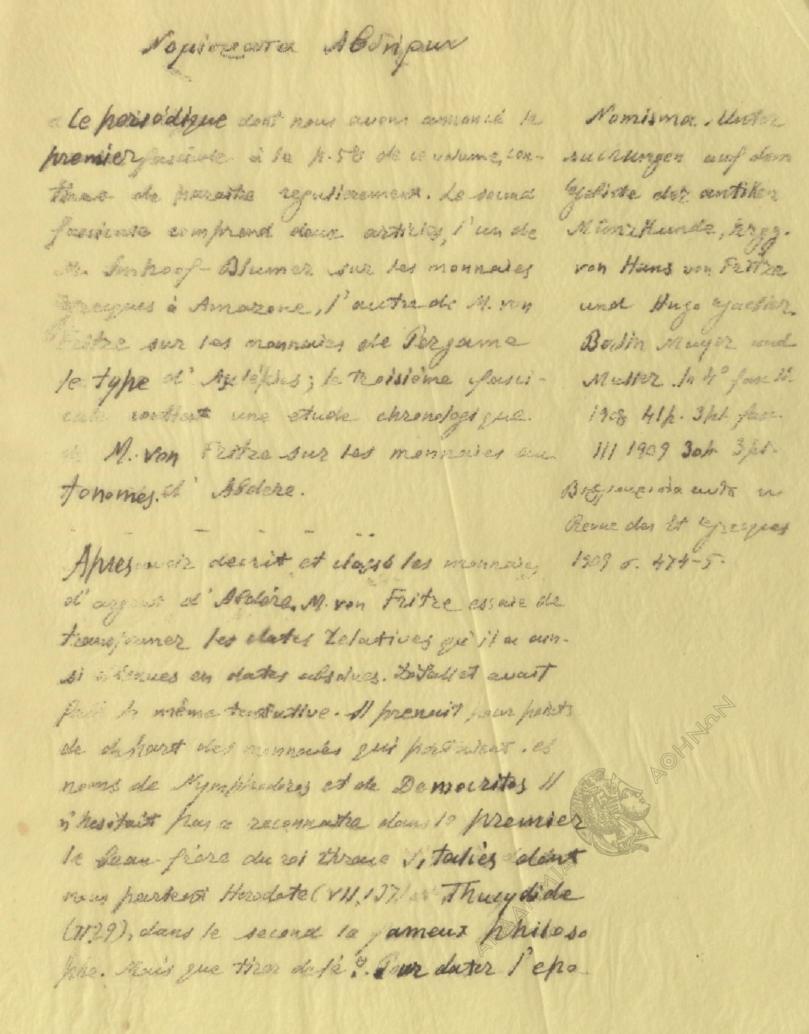 Νομίσματα Αβδήρων
Le periódique dont nous avons annoncé le
premier fascicule à la p. 58 de ce volume, con-
tinue de paraitre regulierement. Le second
fascicule comprend deux articles, l'un de
M. Imhoof-Blumer sur les monnaies
grecques à Amazone, l'autre de M. von
Fritze sur les monnaies de Pergame
le type d'Asclépios; le troisième fasci-
cule contient une etude chronologique
de M. von Fritze sur les monnaies au
tonomes d'Abdere.
Apres avoir decrit et classé les monnaies
d'argent d'Abdére, M. von Fritze essaie de
transformer les dates relatives qu'il a ain-
si obtenues en dates absolues. avait
fait la même tentative. Il prenait pour points
de depart des monnaies qui portaient les
noms de Nymphodoros et de Democritos Il
n'hesitait pas a reconnaitre dans le premier
le beau frére du roi thrace Sitalcès dont
nous parlent Herodote (VII, 137) et Thucydide
(II 29), dans le second le fameux philoso
phe. Mais que tirer de là? Pour dater l'epo
Nomisma. Unter
suchungen auf dem
Gebiete der antiken
Münzkunde, hrzg.
von Hans von Fritze
und Hugo Gaebler
Berlin Mayer und
Muller. In 4° fasc II
1908 41p. 3pl. fasc
III 1909 30p. 3pl.
Βιβλιοκρισία
Revue des Et Grecques
1909 σ. 474-5.
ΑΚΑΔΗΜΙΑ ΑΘΗΝΩΝ